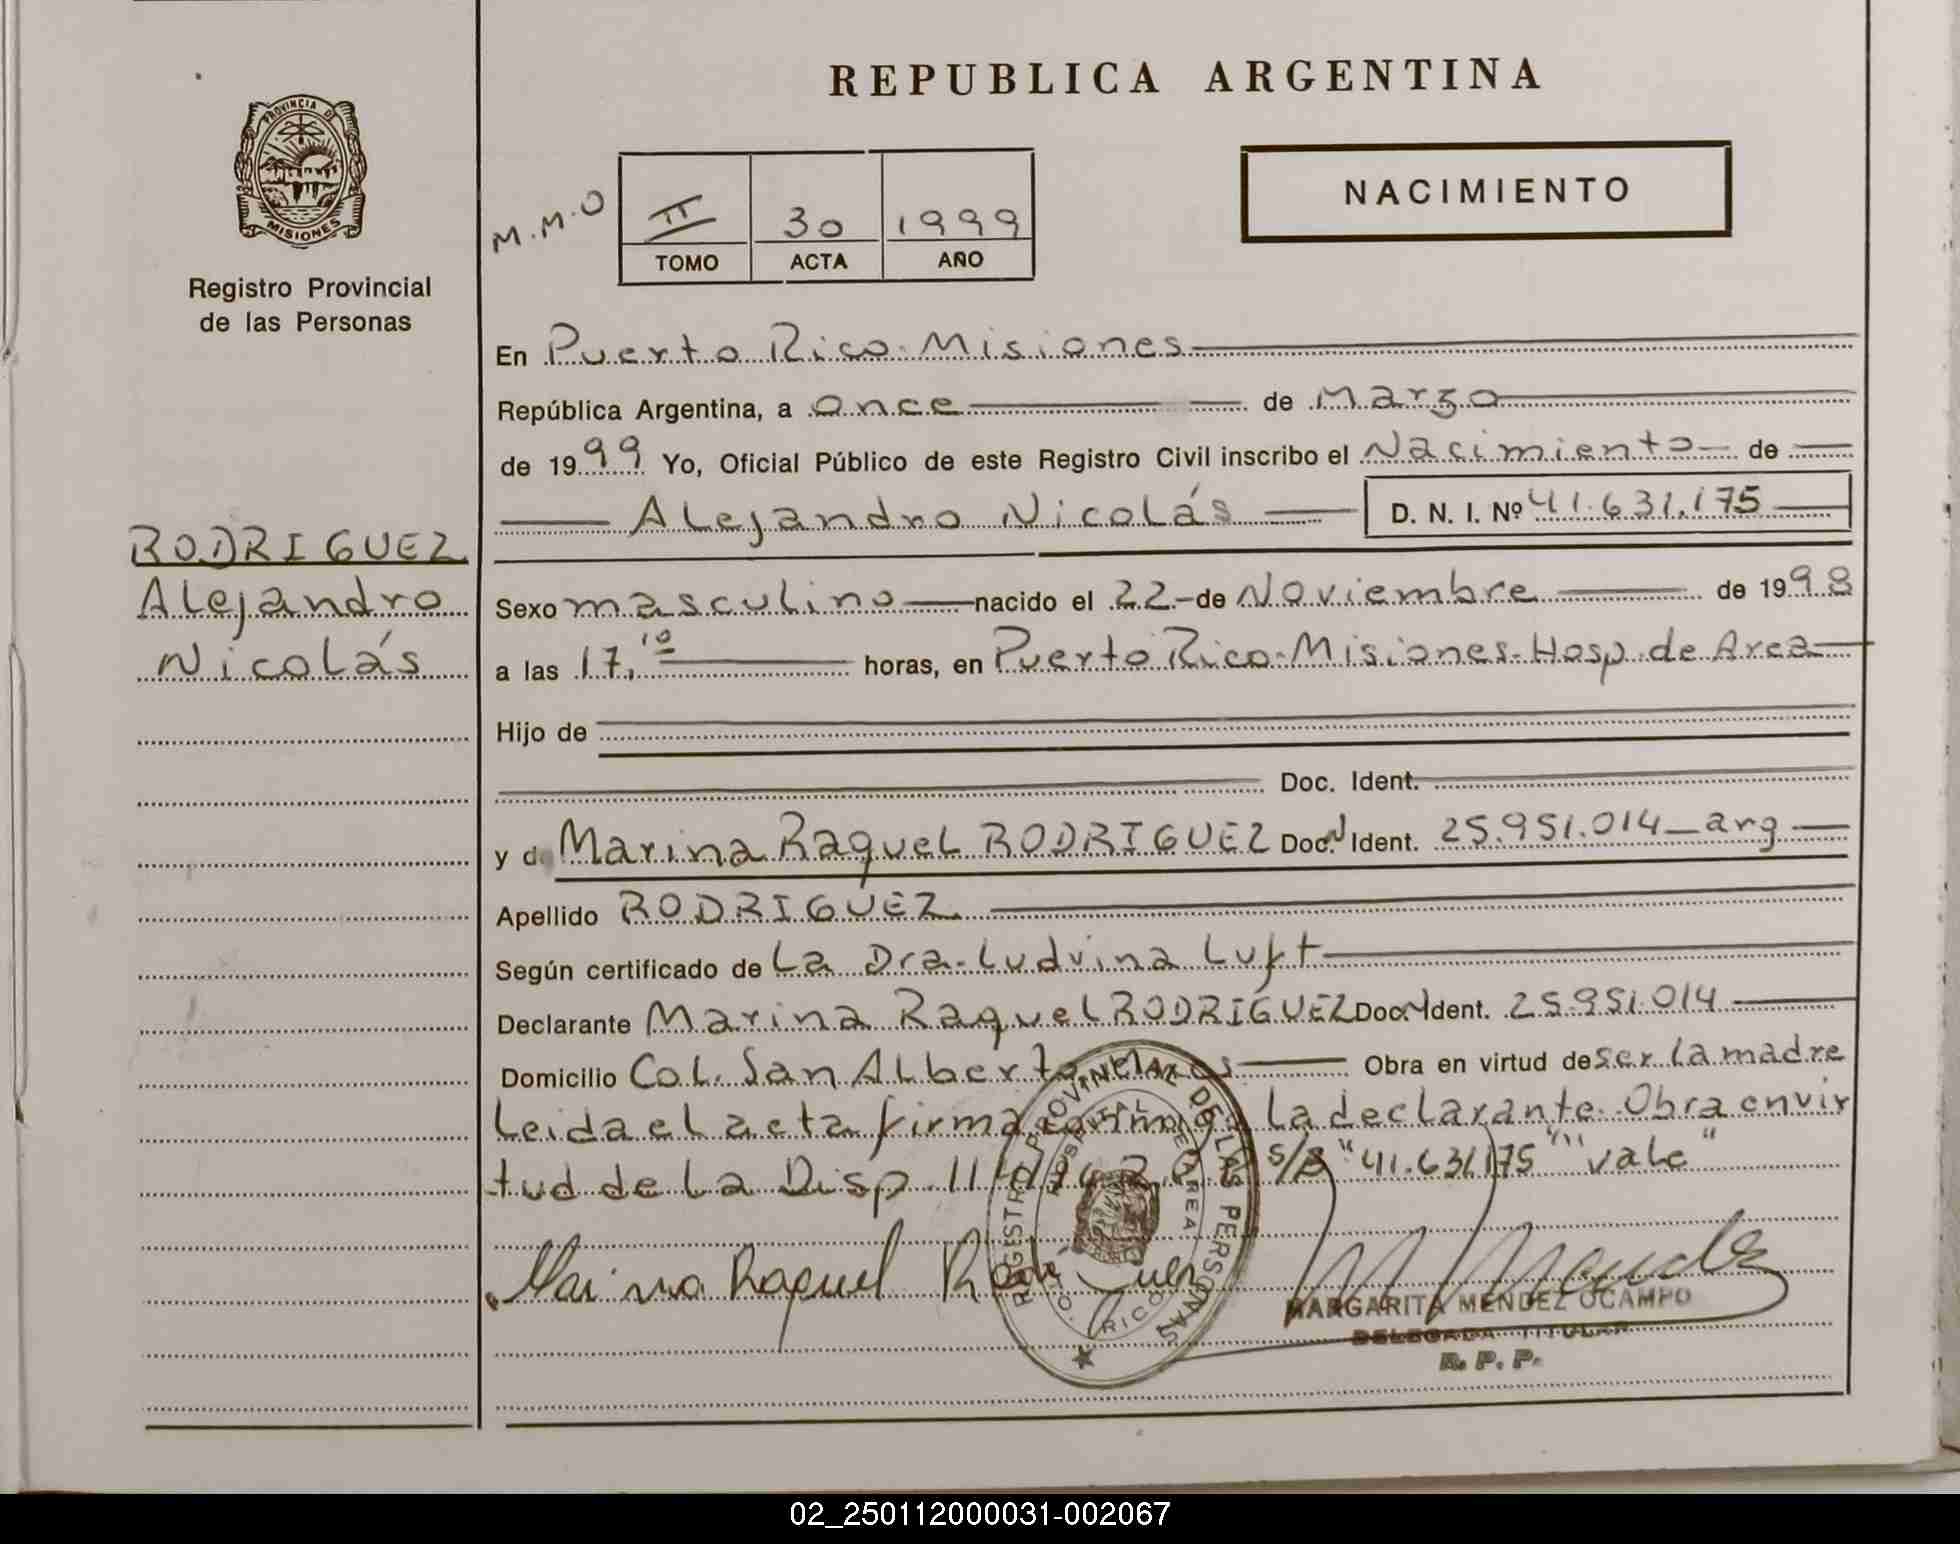 REPUBLICA ARGENTINA
PROVINCIA DE
MISIONES
Registro Provincial
de las Personas
M.M.O
II 30 1999
TOMO ACTA AÑO
NACIMIENTO
RODRIGUEZ
Alejandro
Nicolás
En Puerto Rico. Misiones
República Argentina, a once de Marzo
de 1999 Yo, Oficial Público de este Registro Civil inscribo el Nacimiento de
Alejandro Nicolás D. N. I. Nº 41.631.175
Sexo masculino nacido el 22 de Noviembre de 1998
a las 17,10 horas, en Puerto Rico. Misiones. Hosp. de Area
Hijo de
Doc. Ident.
y de Marina Raquel RODRIGUEZ Doc. N Ident. 25.951.014 arg
Apellido RODRIGUEZ
Según certificado de La Dra. Ludvina Luft
Declarante Marina Raquel RODRIGUEZ Doc. N Ident. 25.951.014
Domicilio Col. San Alberto Obra en virtud de ser la madre
Leida el acta firma la declarante. Obra en vir
tud de la Disp. 11 S/B "41.631.175" "vale"
Marina Raquel Rodriguez
REGISTRO PROVINCIAL DE LAS PERSONAS
HOSPITAL DE AREA
RICO
MARGARITA MENDEZ OCAMPO
DELEGADA TITULAR
R. P. P.
02_250112000031-002067